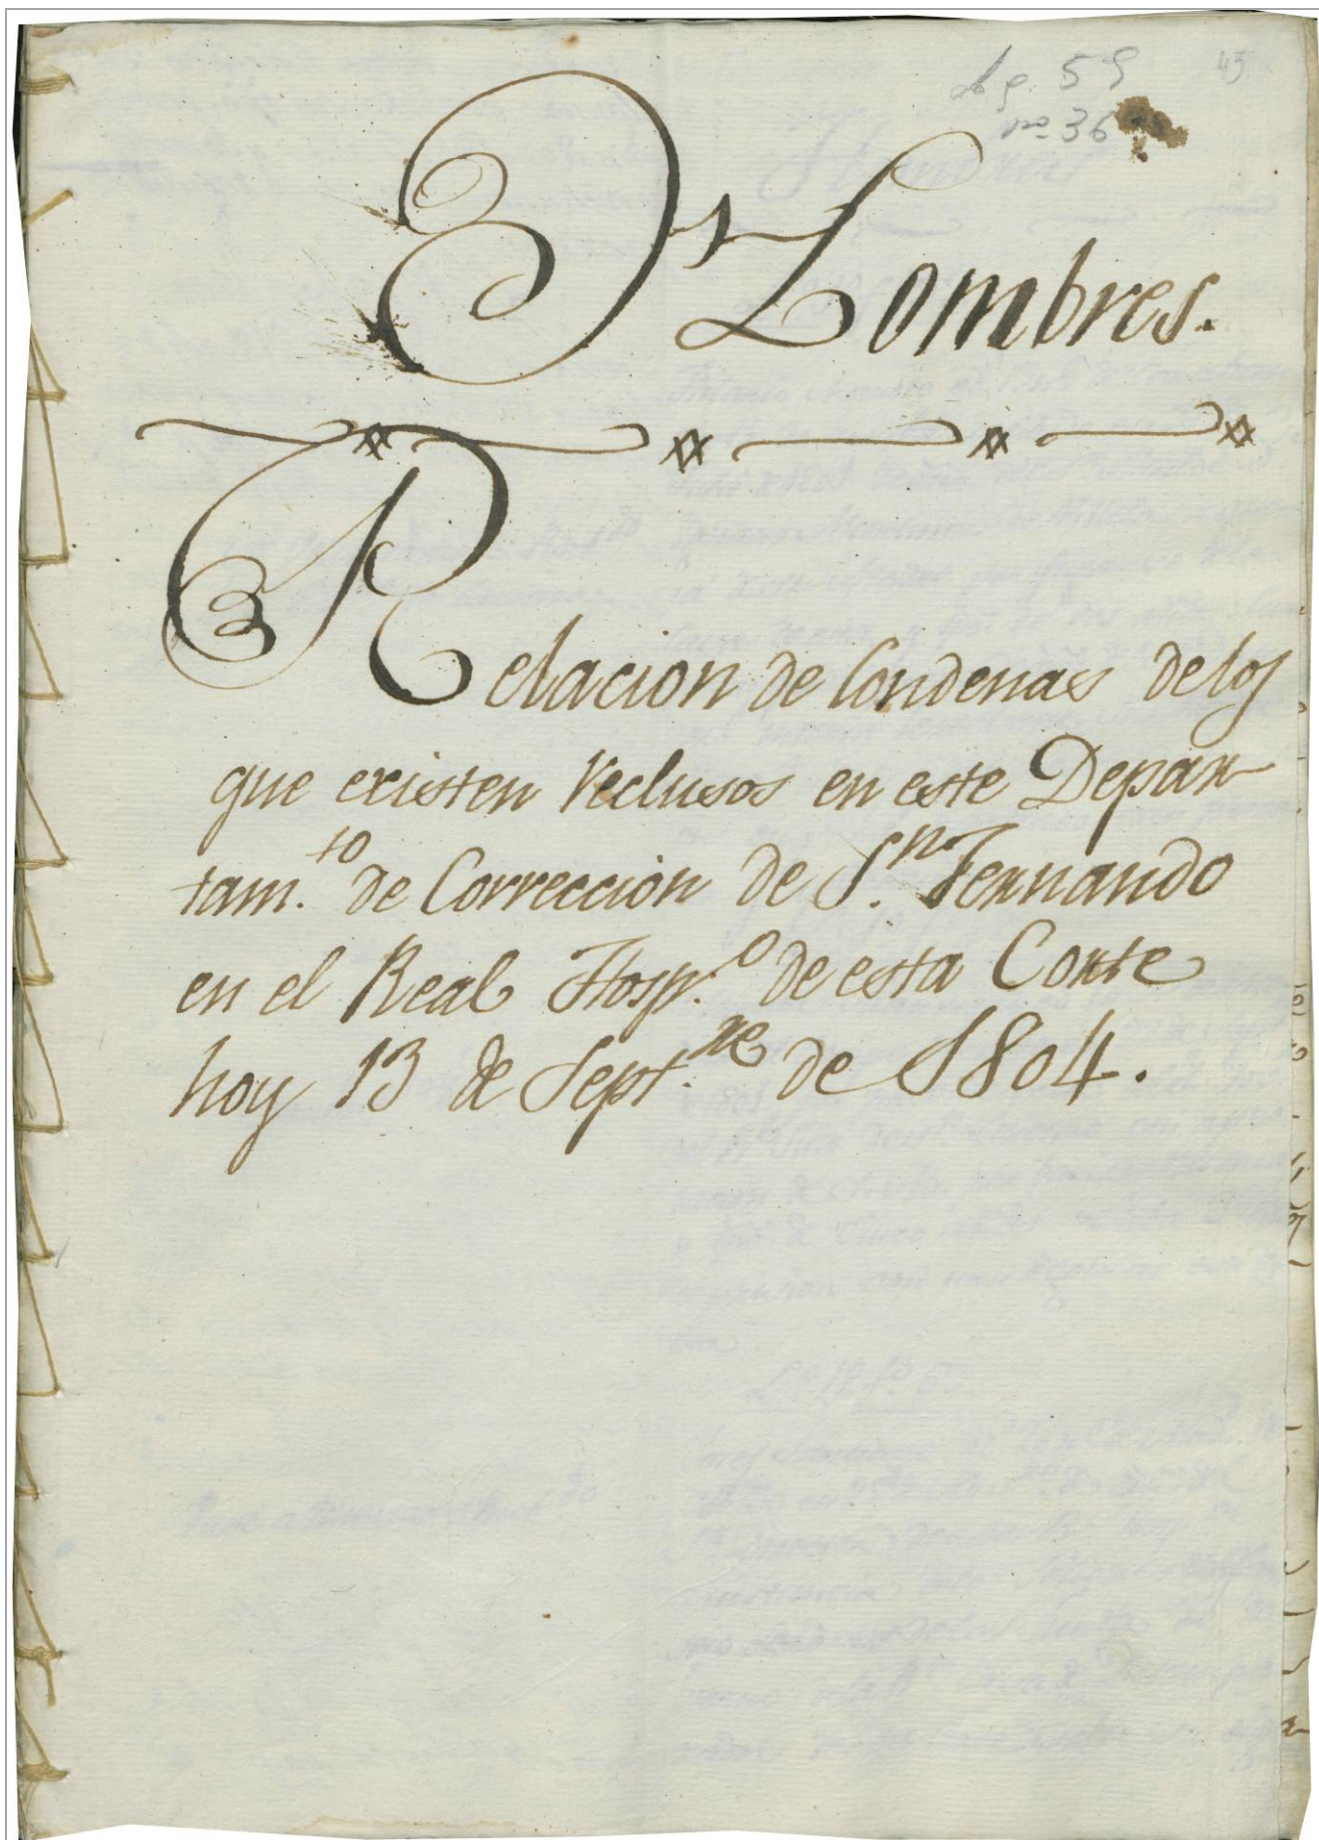 leg. 59
nº 36
43
Hombres.
Relacion de Condenas de los
que existen reclusos en este Depar
tam.to de Correccion de S.n Fernando
en el Real Hosp.o de esta Corte
hoy 13 de Sept.re de 1804.